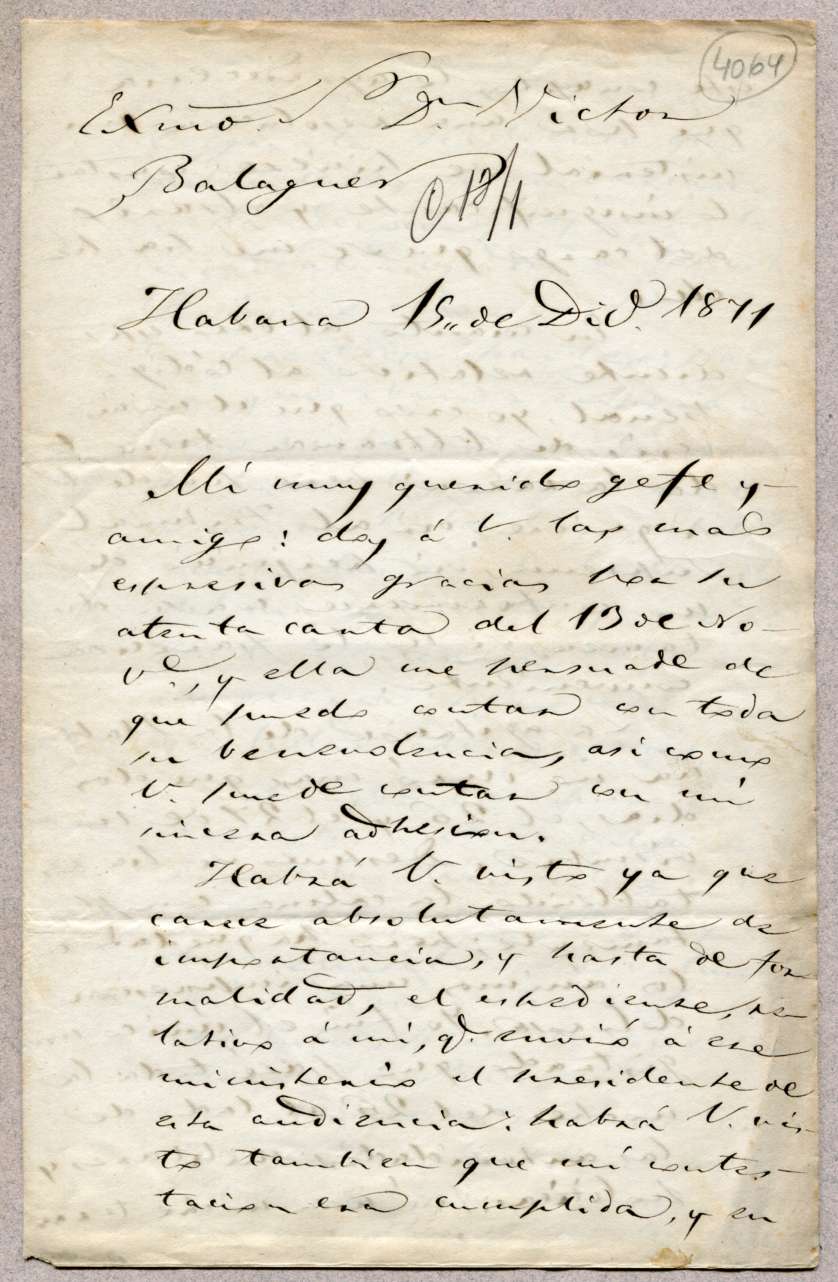 4064
Exmo. Sr. Dn. Victor
Balaguer
C 18/1
Habana 15,, de Dice. 1871
Mi muy querido gefe y
amigo: doy á V. las mas
espresivas gracias por su
atenta carta del 13 de No-
ve., y ella me persuade de
que puedo contar con toda
su benevolencia, asi como
V. puede contar con mi
sincera adhesion.
Habrá V. visto ya que
carece absolutamente de
importancia, y hasta de for
malidad, el espediente, re
lativo á mi, q. envió á ese
ministerio el presidente de
esta audiencia: habrá V. vis-
to tambien que mi contes-
tacion era cumplida, y en